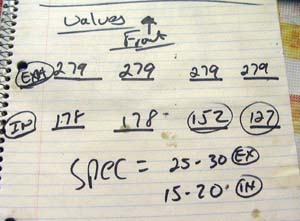 values
Front
EXH 279 279 279 279
IN 178 178 152 127
SPEC = 25-30 EX
15-20 IN